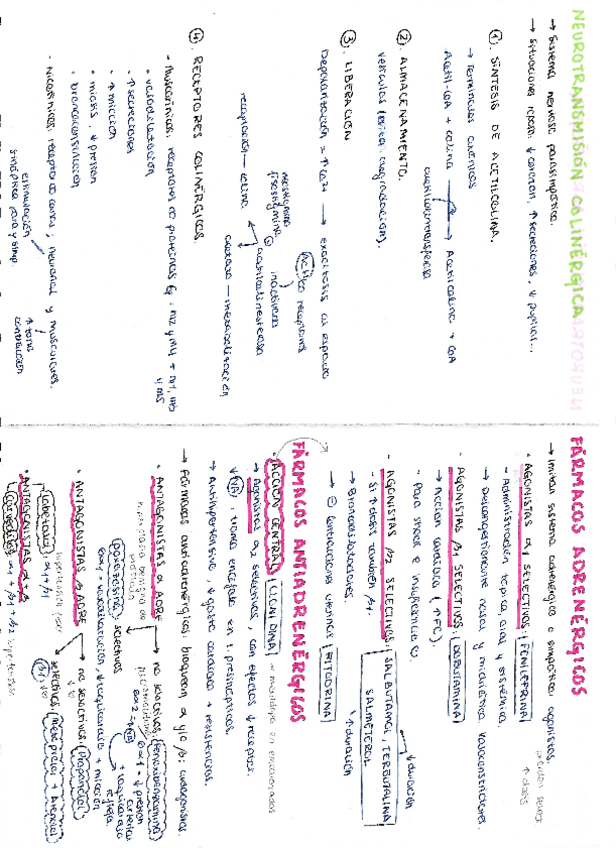 NEUROTRANSMISIÓN COLINÉRGICA
→ Sistema nervioso parasimpático.
→ Situaciones reposo ↓ corazón, ↑ secreciones, ↓ pupilas...
① SÍNTESIS DE ACETILCOLINA.
→ Terminales
Acetil-CoA + colina → Acetilcolina + CoA
acetiltransferasa
② ALMACENAMIENTO.
vesículas (evitan degradación).
③ LIBERACIÓN
Depolarización = ↑ Ca2+ → exocitosis al espacio
receptores
inactivarse
neostigmina
fisostigmina
⊖ acetilcolinesterasa
recaptación — colina
acetato — metabolización
④ RECEPTORES COLINÉRGICOS.
• Muscarínicos: receptores de proteínas G: M2 y M4 + M1, M3 y M5
• vasodilatación
• ↑ secreciones
• ↑ micción
• miosis, ↓ presión
• broncoconstricción
• Nicotínicos: receptor de canal; neuronal y musculares.
estimulación
sináptica para y simp.
↑ tono
contracción
FÁRMACOS ADRENÉRGICOS
→ Imitan sistema adrenérgico o simpático: agonistas.
↑ dosis
• AGONISTAS α1 SELECTIVOS: FENILEFRINA
• Administración tópica, oral y sistémica.
→ Descongestionante nasal y midriático. Vasoconstrictores.
• AGONISTAS β1 SELECTIVOS: DOBUTAMINA
→ Acción cardíaca (↑ FC).
• Para shock e insuficiencia.
• AGONISTAS β2 SELECTIVOS: SALBUTAMOL, TERBUTALINA → ↓ duración
• Si ↑ dosis también β1.
SALMETEROL
↑ duración
→ Broncodilatadores.
→ ⊖ contracciones uterinas: RITODRINA
FÁRMACOS ANTIADRENÉRGICOS
• ACCIÓN CENTRAL: CLONIDINA → metildopa en embarazadas
→ Agonistas α2 selectivos, con efectos
↓ NA, tronco encéfalo en t. presinápticos.
• Antihipertensivo, ↓ gasto cardíaco + resistencias.
→ Fármacos antiadrenérgicos: bloquean α y/o β: antagonistas.
• ANTAGONISTAS α ADRE → no selectivos: Fenoxibenzamina
hiperplasia benigna de próstata
selectivos
prazosina
⊖ α1 = vasodilatación, ↓ taquicardia + micción
⊖ α1 = ↓ presión arterial
⊖ α2 = ↑ NA
+ taquicardia refleja.
• ANTAGONISTAS β ADRE → no selectivos: Propranolol
selectivos: Metoprolol + Atenolol
• ANTAGONISTAS α y β
Labetalol: α1 + β1
Carvedilol: α1 + β1 + β2
hipertensión